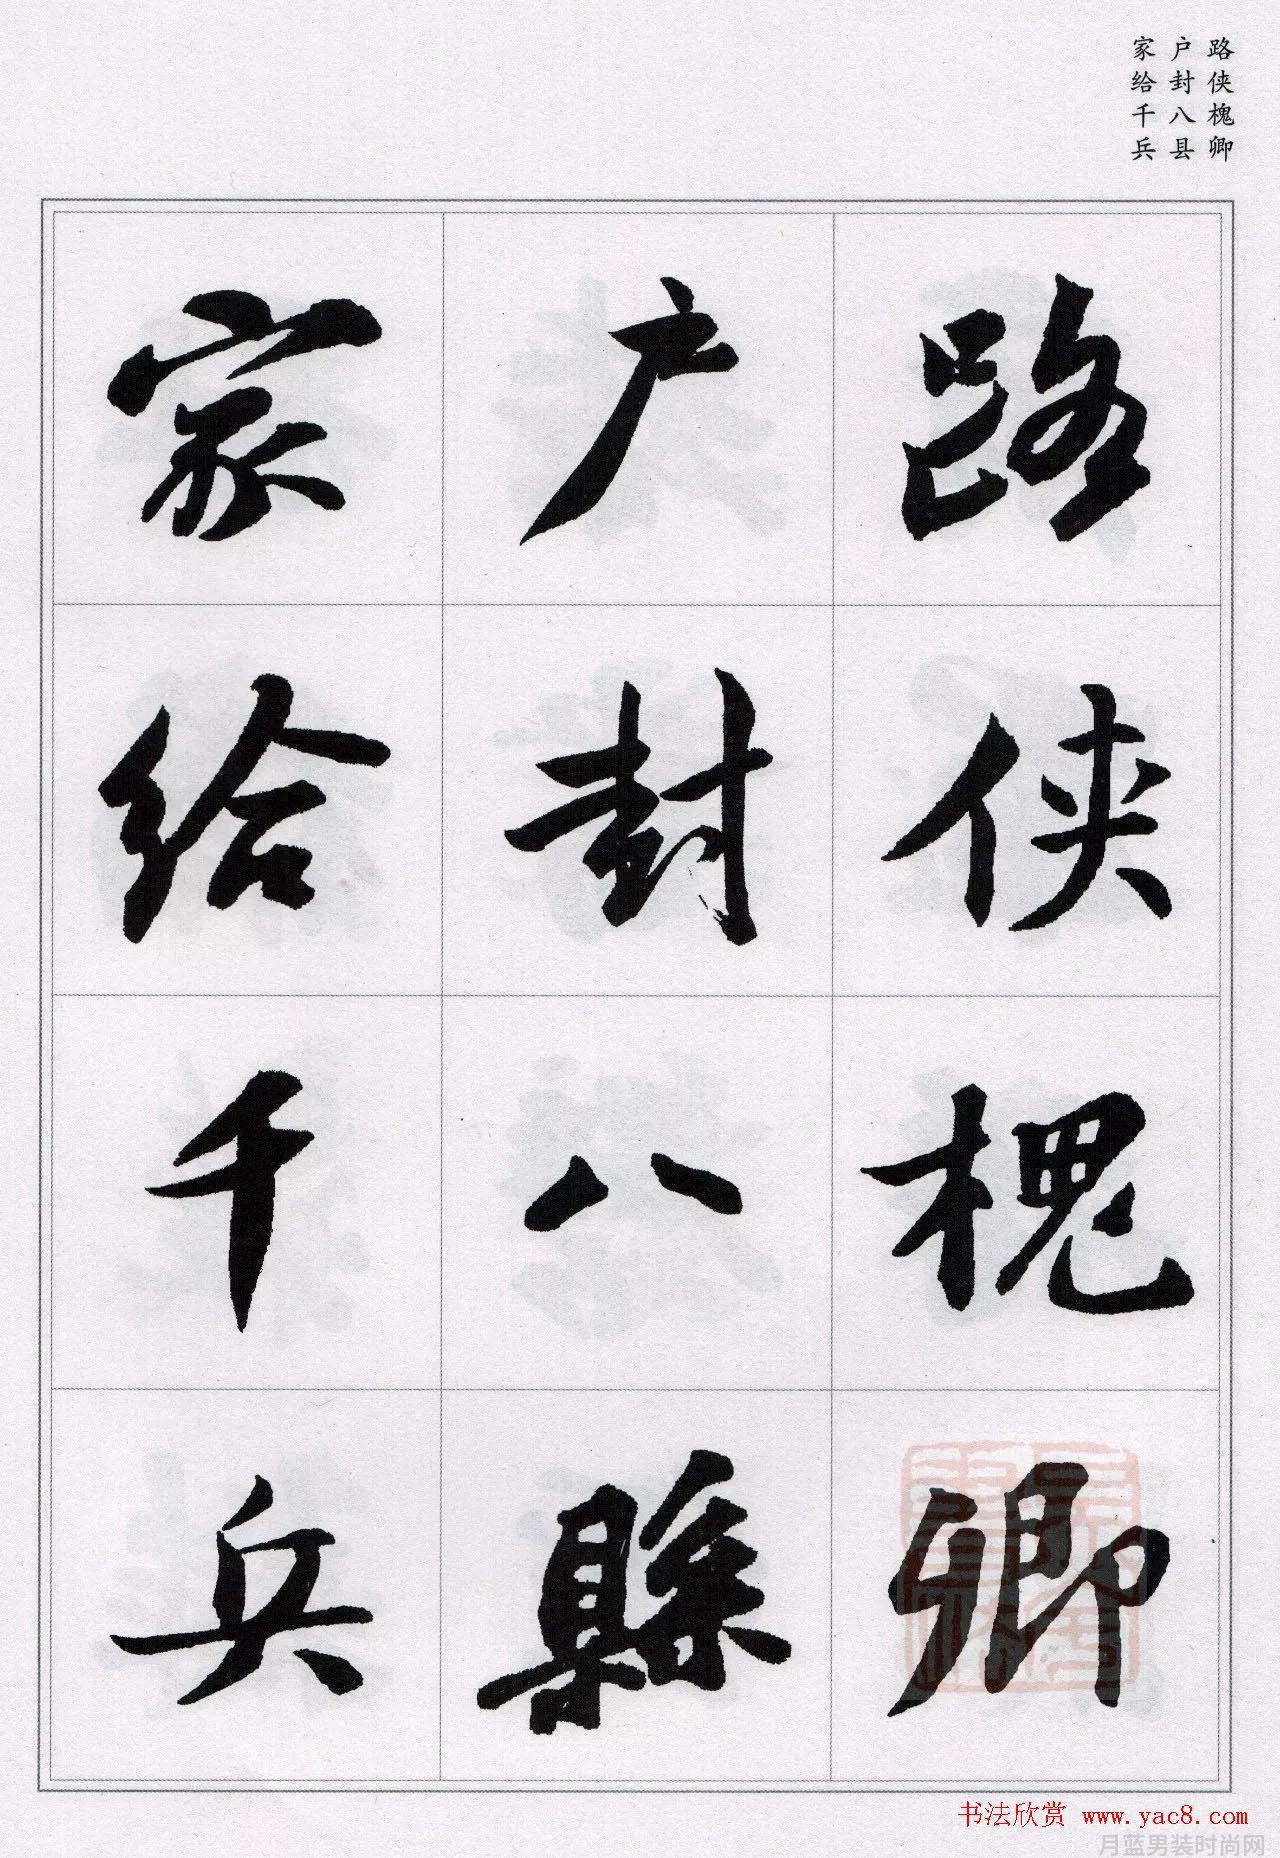 路侠槐卿
户封八县
家给千兵
路侠槐卿
户封八縣
家给千兵
书法欣赏 www.yac8.com
月蓝男装时尚网